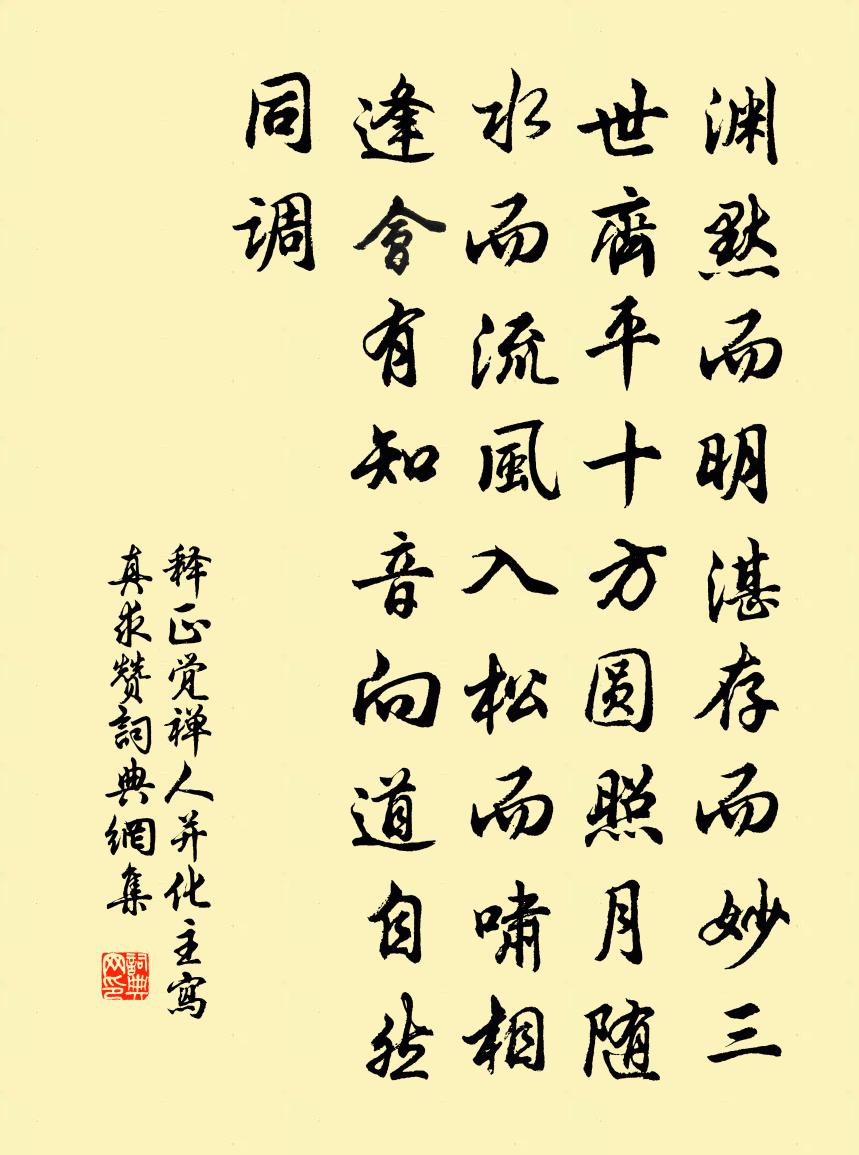 渊默而明湛存而妙三
世齊平十方圆照月随
水而流風入松而啸相
逢會有知音向道自然
同调
释正觉禅人并化主寫
真求赞詞典網集
詞典
网印